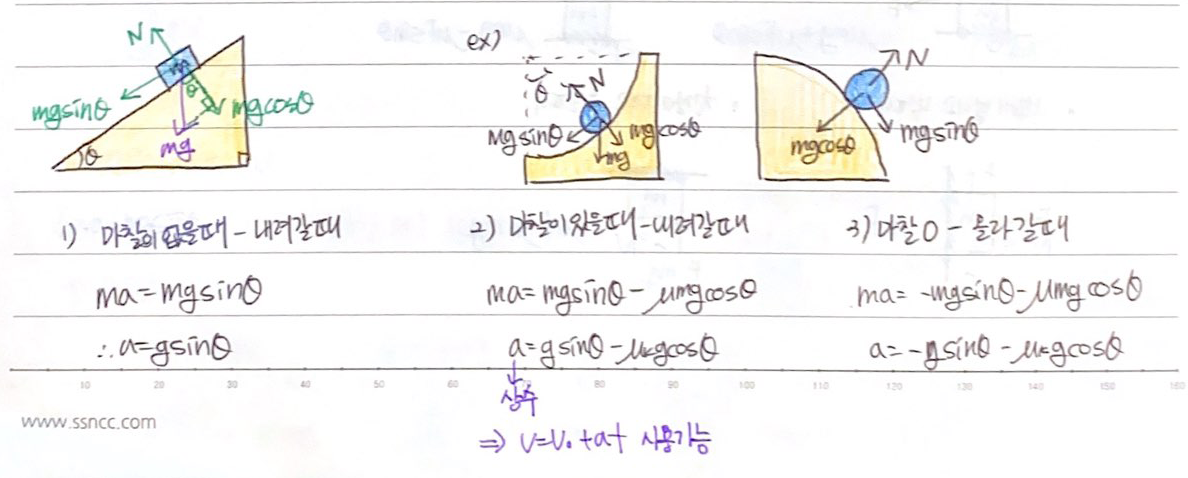 N
m
θ
mgsinθ
mgcosθ
mg
θ
ex)
θ
N
mgsinθ
mgcosθ
mg
N
mgcosθ
mgsinθ
1) 마찰이 없을때 - 내려갈때
ma=mgsinθ
∴a=gsinθ
2) 마찰이 있을때 - 내려갈때
ma=mgsinθ - μmgcosθ
a=gsinθ - μₖgcosθ
상수
⇒ v=v₀+at 사용가능
3) 마찰O - 올라갈때
ma= -mgsinθ - μmgcosθ
a= -gsinθ - μₖgcosθ
10 20 30 40 50 60 70 80 90 100 110 120 130 140 150 160
www.ssncc.com